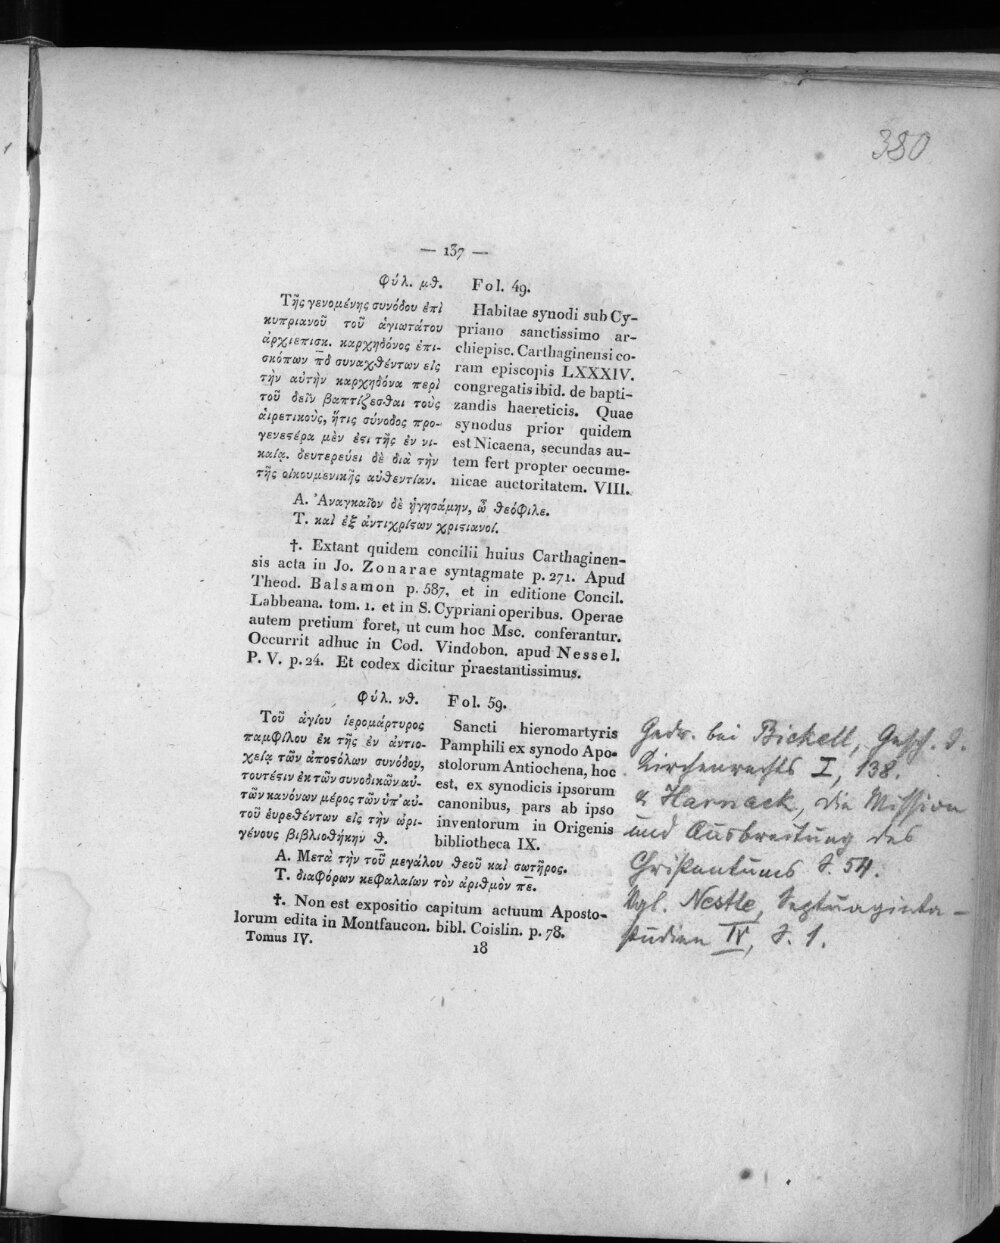 380
— 137 —
Φύλ. μθ.
Τῆς γενομένης συνόδου ἐπὶ
κυπριανοῦ τοῦ ἁγιωτάτου
ἀρχιεπισκ. καρχηδόνος ἐπι-
σκόπων π̅δ̅ συναχθέντων εἰς
τὴν αὐτὴν καρχηδόνα περὶ
τοῦ δεῖν βαπτίζεσθαι τοὺς
αἱρετικοὺς, ἥτις σύνοδος προ-
γενεϛέρα μὲν ἐϛι τῆς ἐν νι-
καίᾳ. δευτερεύει δὲ διὰ τὴν
τῆς οἰκουμενικῆς αὐθεντίαν.
Fol. 49.
Habitae synodi sub Cy-
priano sanctissimo ar-
chiepisc. Carthaginensi co-
ram episcopis LXXXIV.
congregatis ibid. de bapti-
zandis haereticis. Quae
synodus prior quidem
est Nicaena, secundas au-
tem fert propter oecume-
nicae auctoritatem. VIII.
Α. Ἀναγκαῖον δὲ ἡγησάμην, ὦ θεόφιλε.
Τ. καὶ ἐξ ἀντιχρίϛων χριϛιανοί.
†. Extant quidem concilii huius Carthaginen-
sis acta in Jo. Zonarae syntagmate p. 271. Apud
Theod. Balsamon p. 587, et in editione Concil.
Labbeana. tom. 1. et in S. Cypriani operibus. Operae
autem pretium foret, ut cum hoc Msc. conferantur.
Occurrit adhuc in Cod. Vindobon. apud Nessel.
P. V. p. 24. Et codex dicitur praestantissimus.
Φύλ. νθ.
Τοῦ ἁγίου ἱερομάρτυρος
παμφίλου ἐκ τῆς ἐν ἀντιο-
χείᾳ τῶν ἀποϛόλων συνόδου,
τουτέϛιν ἐκ τῶν συνοδικῶν αὐ-
τῶν κανόνων μέρος τῶν ὑπ' αὐ-
τοῦ εὑρεθέντων εἰς τὴν ὠρι-
γένους βιβλιοθήκην θ.
Fol. 59.
Sancti hieromartyris
Pamphili ex synodo Apo-
stolorum Antiochena, hoc
est, ex synodicis ipsorum
canonibus, pars ab ipso
inventorum in Origenis
bibliotheca IX.
Α. Μετὰ τὴν τοῦ μεγάλου θεοῦ καὶ σωτῆρος.
Τ. διαφόρων κεφαλαίων τὸν ἀριθμὸν π̅ε̅.
†. Non est expositio capitum actuum Aposto-
lorum edita in Montfaucon. bibl. Coislin. p. 78.
Tomus IV.
18
Gedr. bei Bickell, Gesch. d.
Kirchenrechts I, 138.
u Harnack, die Mission
und Ausbreitung des
Christentums S. 54.
Vgl. Nestle, Septuaginta-
studien IV, S. 1.